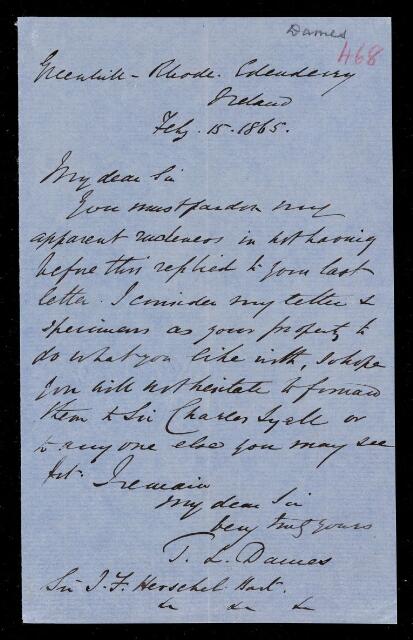 Dames
468
Greenhill - Rhode. Edenderry
Ireland
Feby. 15. 1865.
My dear Sir
You must pardon my
apparent rudeness in not having
before this replied to your last
letter. I consider my letter &
specimens as your property to
do what you like with, I hope
you will not hesitate to forward
them to Sir Charles Lyell or
to any one else you may see
fit. I remain
My dear Sir
very truly yours
T. L. Dames
Sir J. F. Herschel Bart.
&c &c &c